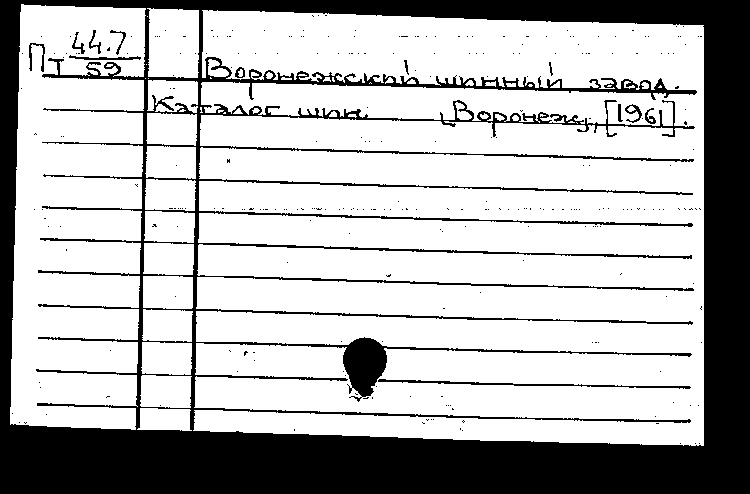 Пт 44.7
59
Воронежский шинный завод.
Каталог шин. [Воронеж], [1961].